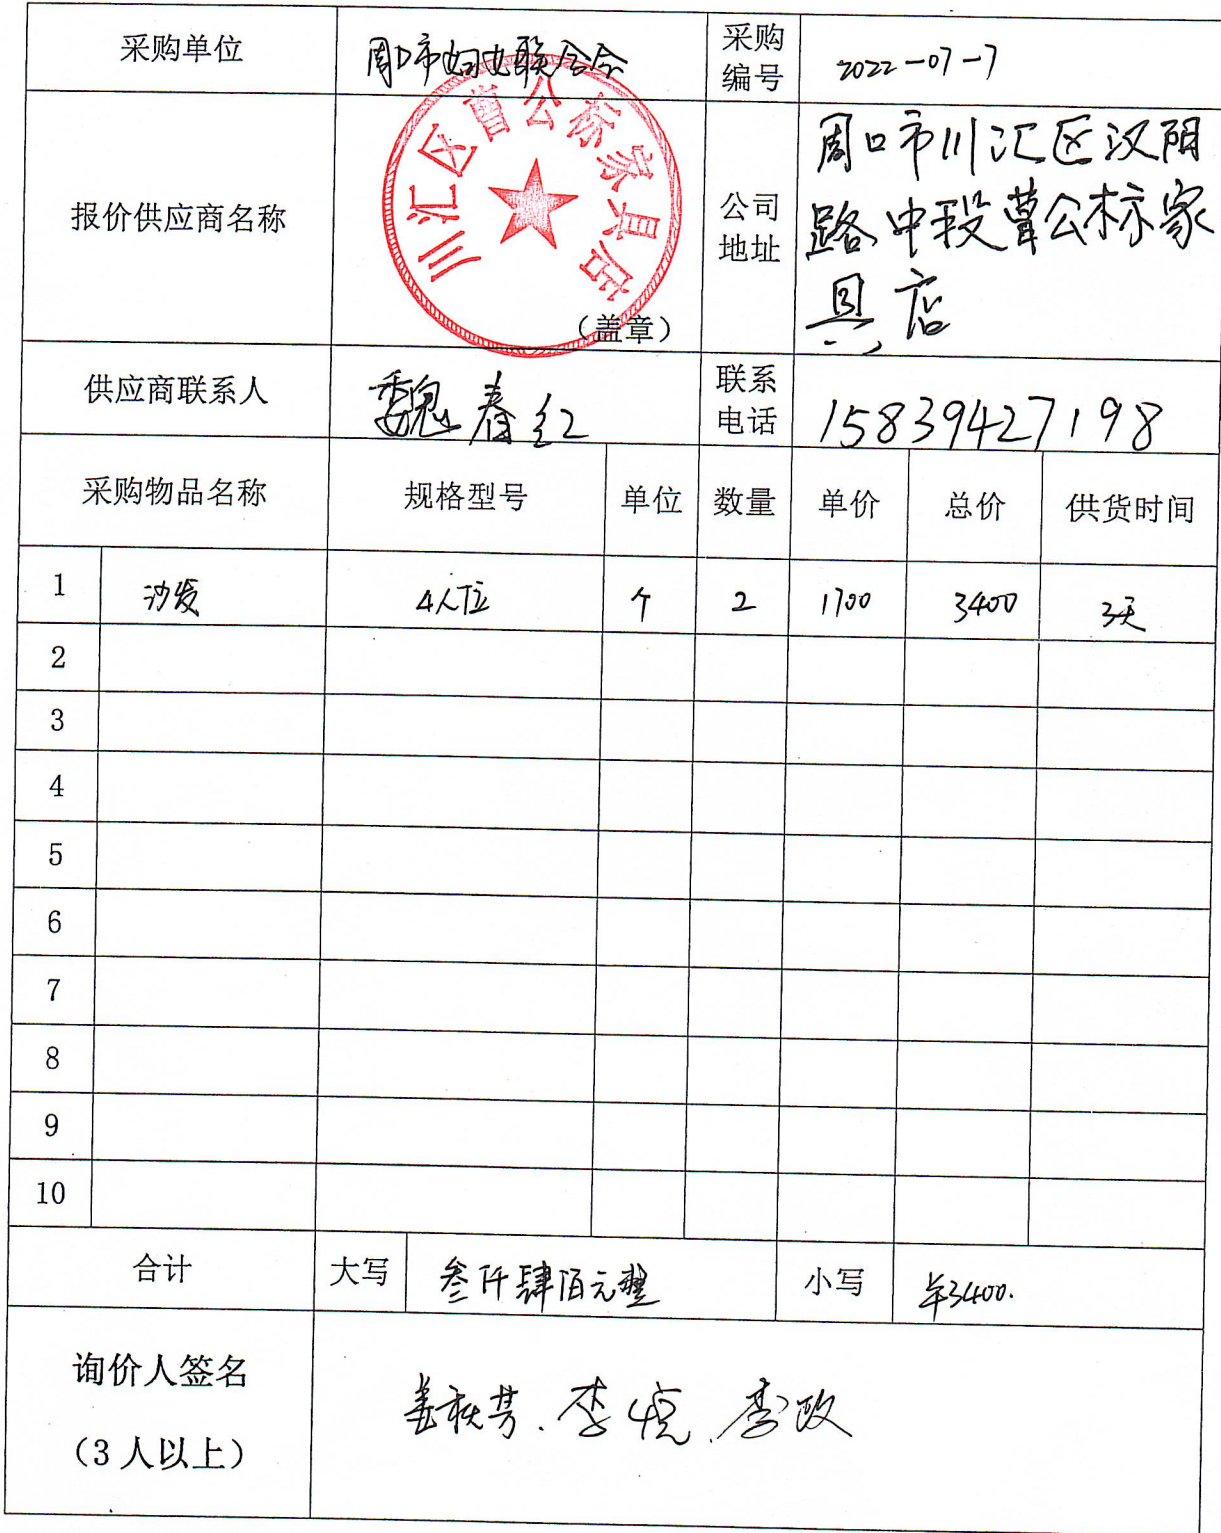 采购单位 周口市妇女联合会 采购编号 2022-07-7
报价供应商名称 川汇区曹公标家具店 (盖章) 公司地址 周口市川汇区汉阳
路中段曹公标家
具店
供应商联系人 魏春红 联系电话 15839427198
采购物品名称 规格型号 单位 数量 单价 总价 供货时间
1 沙发 4人位 个 2 1700 3400 3天
2
3
4
5
6
7
8
9
10
合计 大写 叁仟肆佰元整 小写 ¥3400.
询价人签名 姜秋芳、李悦、李政
(3人以上)